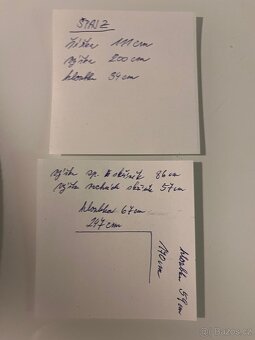 šířka 111 cm
výška 200 cm
hloubka 34 cm
výška sp. skříněk 86 cm
výška vrchních skříněk 57 cm
hloubka 67 cm
247 cm
170 cm
hloubka 59 cm
bazoš.cz